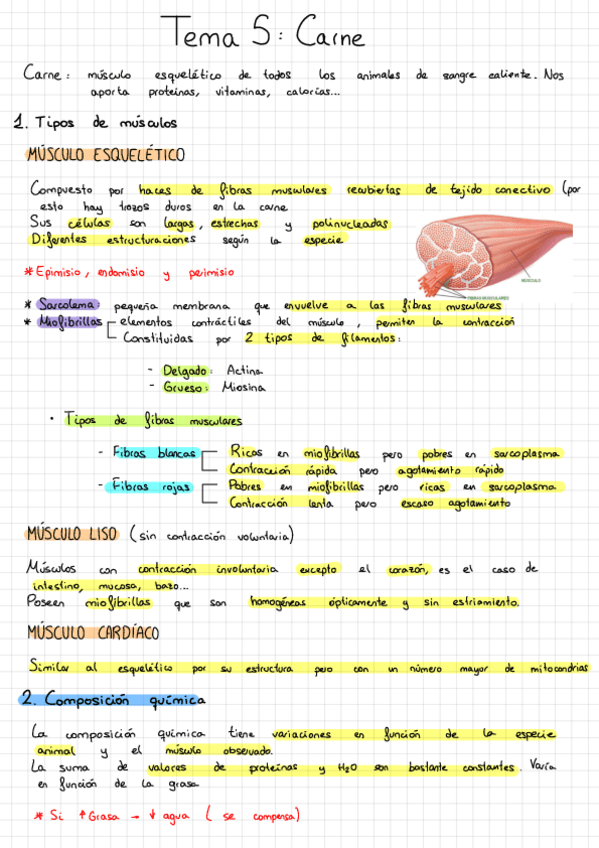 Tema 5: Carne
Carne: músculo esquelético de todos los animales de sangre caliente. Nos
aporta proteínas, vitaminas, calorías...
1. Tipos de músculos
MÚSCULO ESQUELÉTICO
Compuesto por haces de fibras musculares recubiertas de tejido conectivo (por
esto hay trozos duros en la carne
Sus células son largas, estrechas y polinucleadas
Diferentes estructuraciones según la especie
MÚSCULO
FIBRAS MUSCULARES
* Epimisio, endomisio y perimisio
* Sarcolema: pequeña membrana que envuelve a las fibras musculares
* Miofibrillas elementos contráctiles del músculo, permiten la contracción
Constituidas por 2 tipos de filamentos:
- Delgado: Actina
- Grueso: Miosina
• Tipos de fibras musculares
- Fibras blancas Ricas en miofibrillas pero pobres en sarcoplasma
Contracción rápida pero agotamiento rápido
- Fibras rojas Pobres en miofibrillas pero ricas en sarcoplasma
Contracción lenta pero escaso agotamiento
MÚSCULO LISO (sin contracción voluntaria)
Músculos con contracción involuntaria excepto el corazón, es el caso de
intestino, mucosa, bazo...
Poseen miofibrillas que son homogéneas ópticamente y sin estriamiento.
MÚSCULO CARDÍACO
Similar al esquelético por su estructura pero con un número mayor de mitocondrias
2. Composición química
La composición química tiene variaciones en función de la especie
animal y el músculo observado.
La suma de valores de proteínas y H2O son bastante constantes. Varía
en función de la grasa
* Si ↑Grasa → ↓ agua ( se compensa)